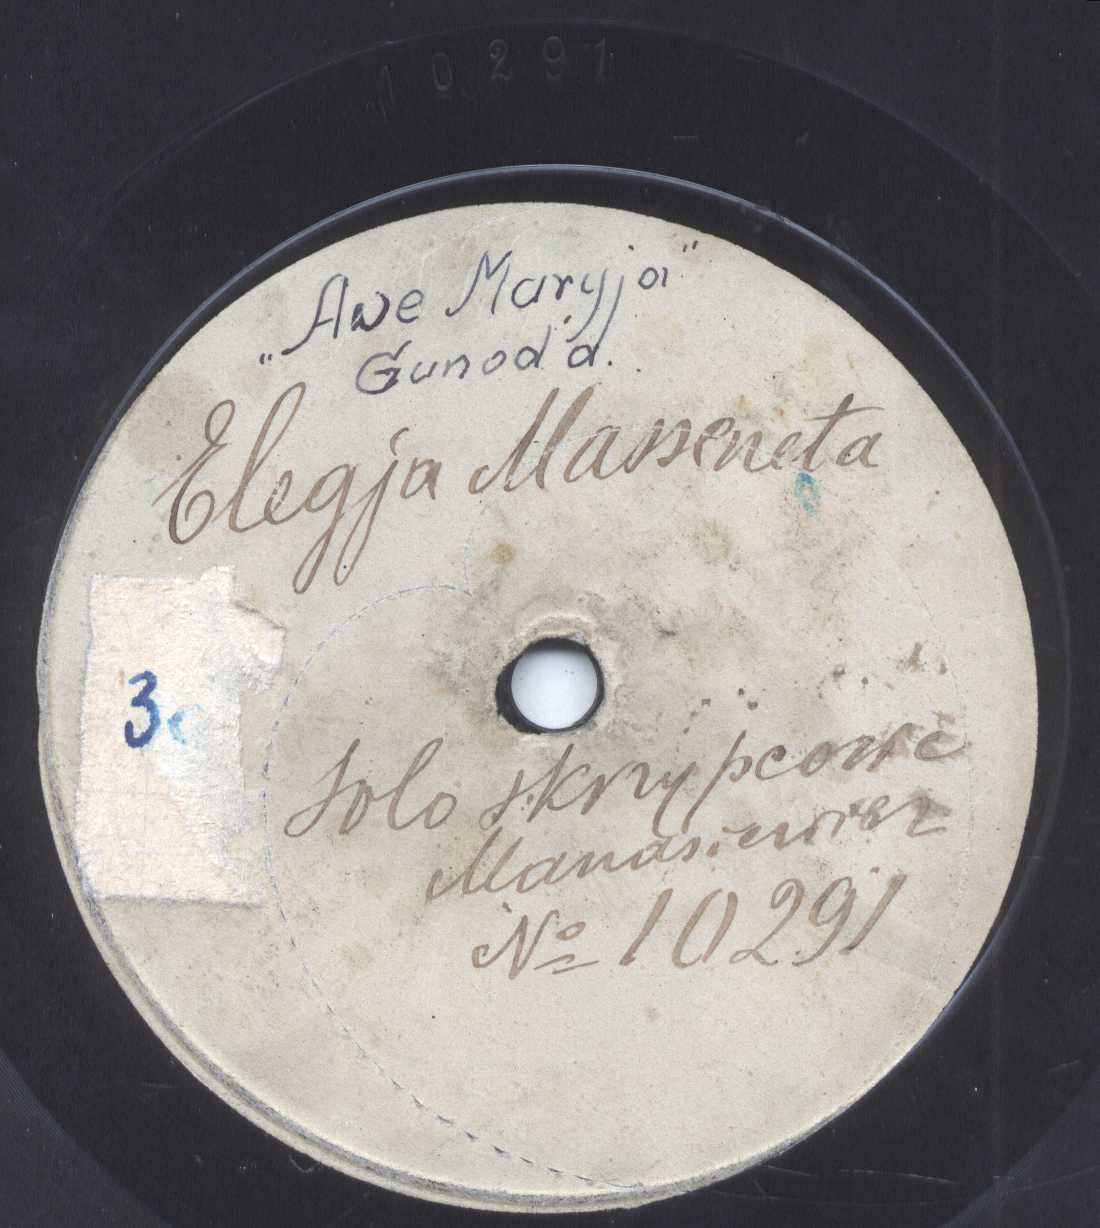 10291
„Awe Maryja"
Gunod'a.
Elegja Masseneta
3
Solo skrzypcowe
Manasiewicz
№ 10291